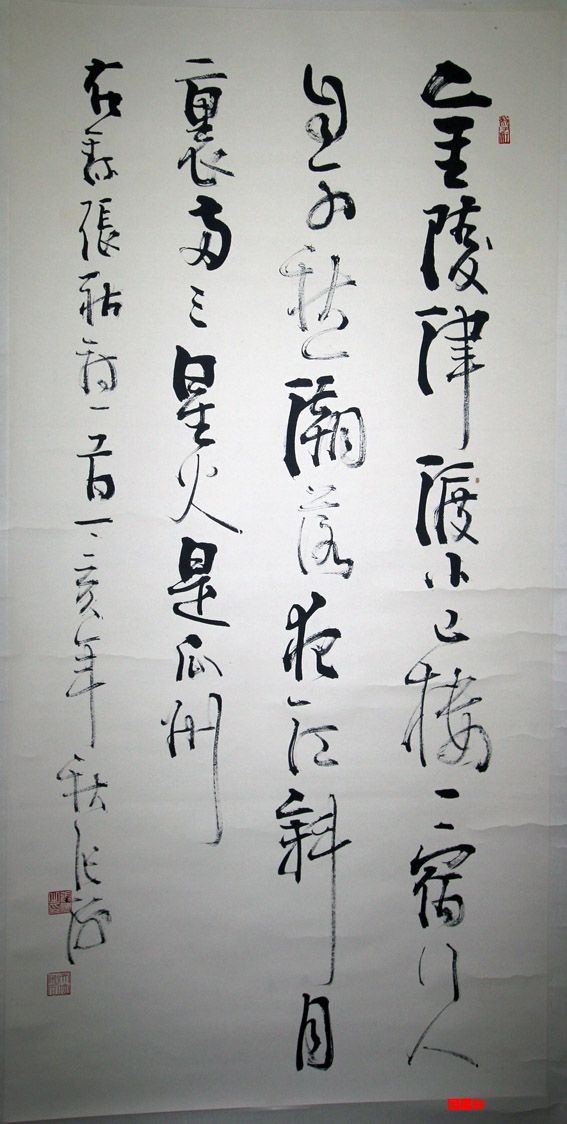 金陵津渡小山樓一宿行人
自可愁潮落夜江斜月
裏兩三星火是瓜州
右录張祜詩一首亥年秋